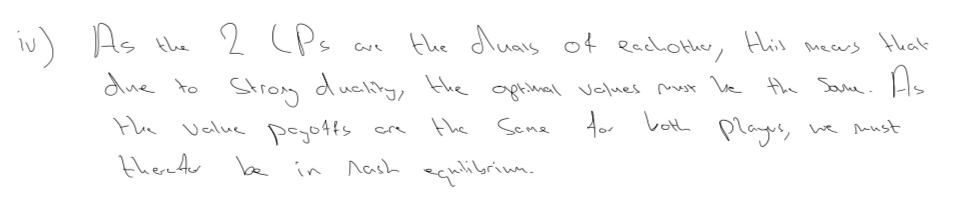 iv) As the 2 LPs are the duals of eachother, this means that
due to strong duality, the optimal values must be the same. As
the value payoffs are the same for both players, we must
therefor be in nash equilibrium.